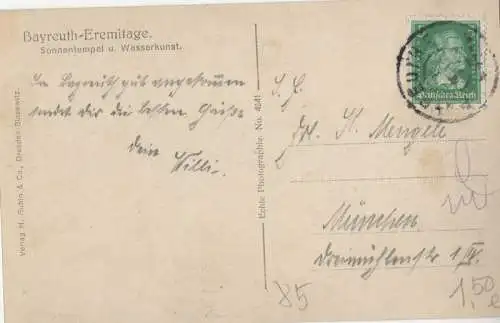 Bayreuth-Eremitage.
Sonnentempel u. Wasserkunst.
In Bayreuth gut angekommen
sendet dir die besten Grüße
dein
Willi.
Verlag H. Rubin & Co., Dresden-Blasewitz.
Echte Photographie. No. 4641
Deutsches Reich
S. H.
H. Mengele
München
Dreimühlenstr. 1/IV.
85
1,50